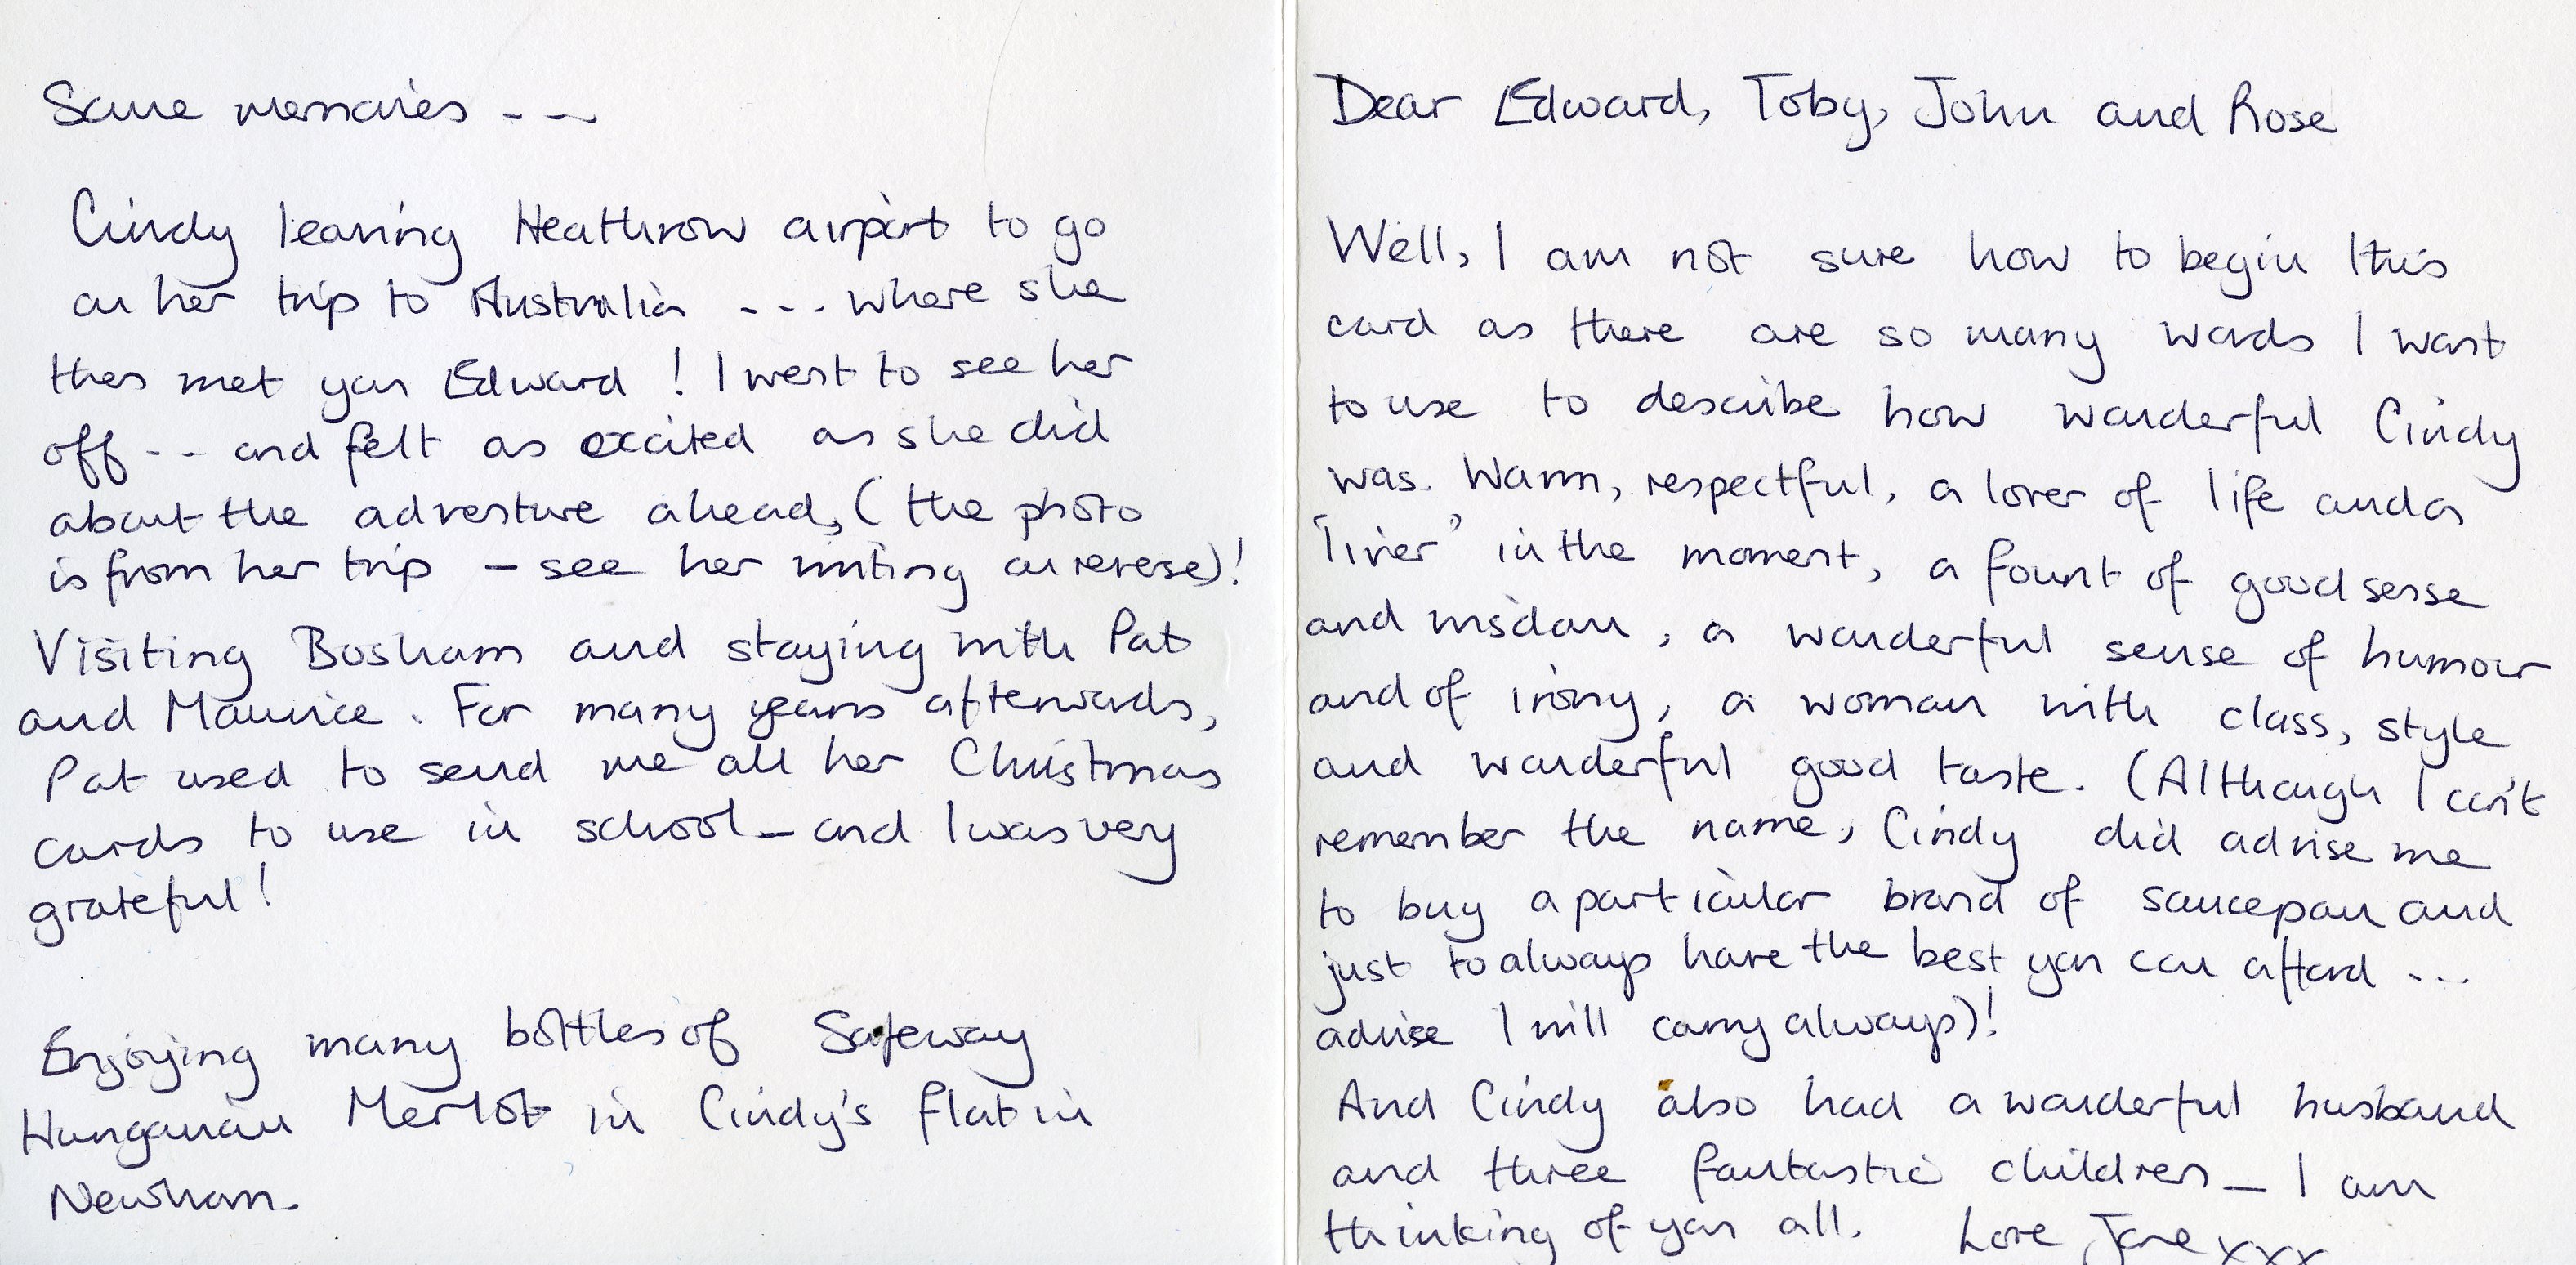 Some memories - -
Cindy leaving Heathrow airport to go
on her trip to Australia - - - where she
then met you Edward ! I went to see her
off - - and felt as excited as she did
about the adventure ahead, ( the photo
is from her trip - see her writing on reverse)!
Visiting Bosham and staying with Pat
and Maurice. For many years afterwards,
Pat used to send me all her Christmas
cards to use in school - and I was very
grateful!
Enjoying many bottles of Safeway
Hungarian Merlot in Cindy's flat in
Newham.
Dear Edward, Toby, John and Rose
Well, I am not sure how to begin this
card as there are so many words I want
to use to describe how wonderful Cindy
was. Warm, respectful, a lover of life and a
'liver' in the moment, a fount of good sense
and wisdom, a wonderful sense of humour
and of irony, a woman with class, style
and wonderful good taste. (Although I can't
remember the name, Cindy did advise me
to buy a particular brand of saucepan and
just to always have the best you can afford ...
advise I will carry always)!
And Cindy also had a wonderful husband
and three fantastic children - I am
thinking of you all. Love Jane xxx